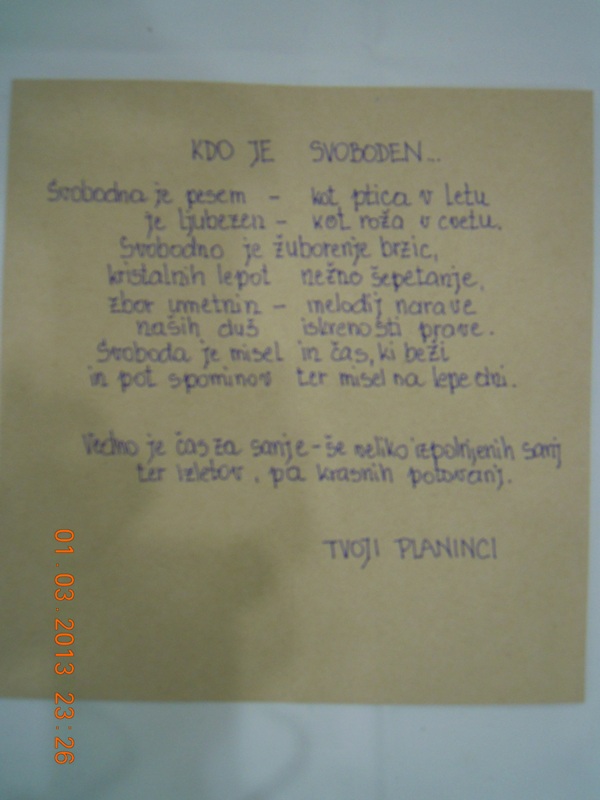 KDO JE SVOBODEN...
Svobodna je pesem - kot ptica v letu
je ljubezen - kot roža v cvetu.
Svobodno je žuborenje brzic,
kristalnih lepot nežno šepetanje,
zbor umetnin - melodij narave
naših duš iskrenosti prave.
Svoboda je misel in čas, ki beži
in pot spominov ter misel na lepe dni.
Vedno je čas za sanje - še veliko izpolnjenih sanj
ter izletov, pa krasnih potovanj.
TVOJI PLANINCI
01.03.2013 23:26